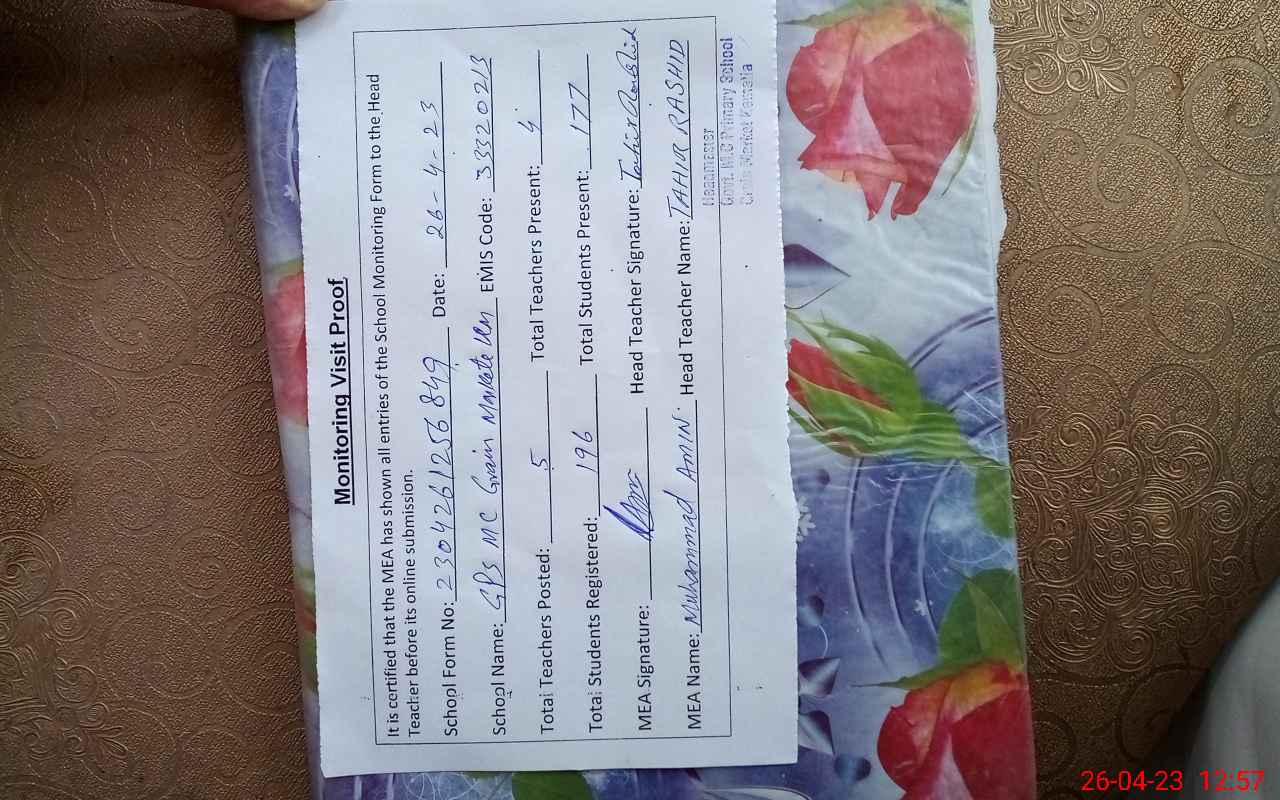 Monitoring Visit Proof
It is certified that the MEA has shown all entries of the School Monitoring Form to the Head
Teacher before its online submission.
School Form No: 2304261256849 Date: 26-4-23
School Name: GPS MC Grain Markete EMIS Code: 33320213
Total Teachers Posted: 5 Total Teachers Present: 4
Total Students Registered: 196 Total Students Present: 177
MEA Signature: Head Teacher Signature: Tahir Rashid
MEA Name: Muhammad AMIN. Head Teacher Name: TAHIR RASHID
Headmaster
Govt. M.C Primary School
Grain Market Kamalia
26-04-23 12:57